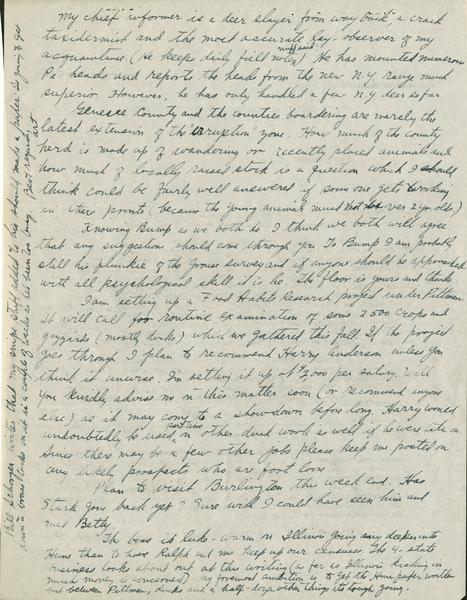 My chief informer is a deer slayer from way back, a crack
taxidermist and the most accurate key-observer of my
acquaintance (He keeps daily field notes) nuff said! He has mounted numerous
Pa. heads and reports the heads from the new N.Y. range much
superior. However, he has only handled a few N.Y. deer so far
Genesee County and the counties boardering are merely the
latest extension of the irruption zone. How much of the county
herd is made up of wandering or recently placed animals and
how much of locally raised stock is a question which I should
think could be fairly well answered if some one gets working
in there pronto (because the young animals must not be over 2 yr olds)
Knowing Bump as we both do I think we both will agree
that any suggestion should come through you. To Bump I am probably
still his flunkie of the Grouse survey and if anyone should be approached
with all psychological skill it is he. The floor is yours and thanks
I am setting up a Food Habits Research project under Pittman.
It will call for routine examination of some 2500 crops and
gizzards (mostly ducks) which we gathered this fall. If the project
goes through I plan to recommend Harry Anderson unless you
think it unwise. I'm setting it up at $2000 per salary. Will
you kindly advise me in this matter soon (or recommend anyone
else) as it may come to a showdown before long. Harry would
undoubtedly be used part time on other duck work as well if he were
Since there may be a few other jobs please keep me posted on
any likely prospects who are foot loose.
Plan to visit Burlington this week end. Has
Stark gone back yet? Sure wish I could have seen him and
met Betty.
The boss is luke-warm on Illinois going any deeper into
Huns than to have Ralph and me keep up our censuses. The 4-state
business looks about out at this writing (as far as Illinois kicking in
much money is concerned) My foremost ambition is to get the Huns paper written
but between Pittman, ducks and a half-doz. other things its tough going.
Bill Schorger writes that my snipe stuff added to his should make a paper. Is going to get